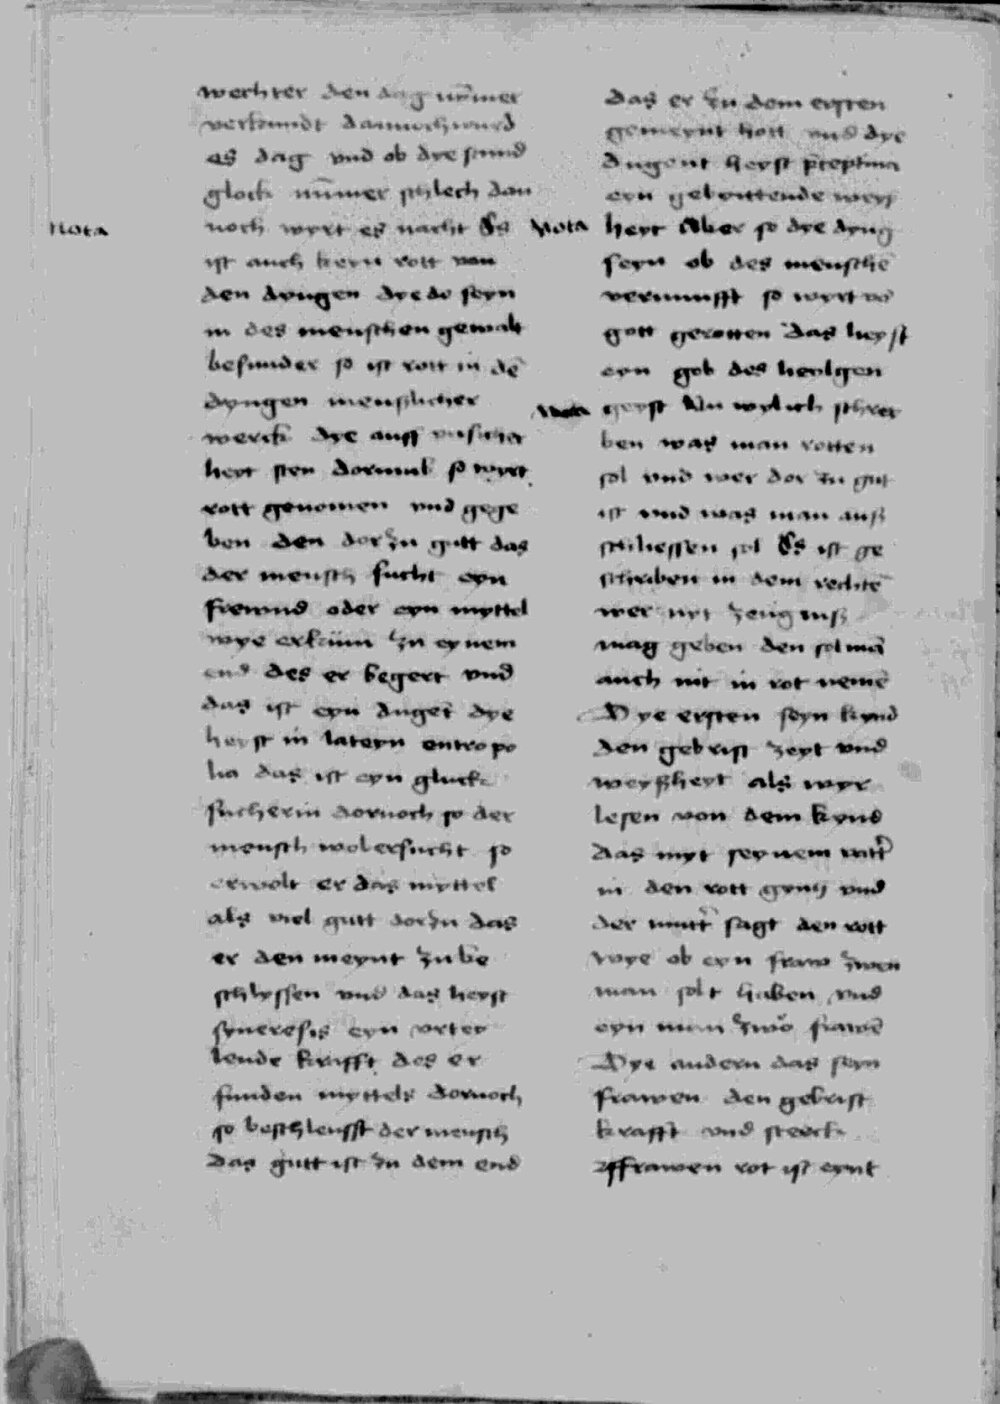 wechter den dag nӯmer
verkundt dannoch wurd
es dag vnd ob dye stund
glock nūmer schlech dan
Nota
noch wyrt es nacht Es
ist auch keyn rott von
den dyngen dye do seyn
in des menschen gewalt
besunder so ist rott in dē
dyngen menslicher
werck dye auff vnsicher
heyt sten dorumb so wyrt
rott genomen vnd gege
ben den dor zu gutt das
der mensch sucht eyn
frewnd oder eyn myttel
wye er kum zu eynem
end des er begert vnd
das ist eyn duget dye
heyst in lateyn entropo
lia das ist eyn gluck
sucherin dornoch so der
mensch wol ersucht so
erwolt er das myttel
als viel gutt dorzu das
er den meynt zu be
schlyssen vnd das heyst
syneresis eyn vrtey
lende krafft des er
funden myttels dornoch
so beschleusst der mensch
das gutt ist zu dem end
das er zu dem ersten
gemeynt hott vnd dye
dugent heyst p̄ceptiua
eyn gebyttende weys
Nota
heyt Aber so dye dyng
seyn ob des menschē
vernunfft so wyrt vō
gott gerotten das heyst
eyn gob des heylgen
Nota
geyst Nu wylich schrey
ben was man rotten
sol vnd wer dor zu gut
ist vnd was man auß
schliessen sol Es ist ge
schriben in dem rechtē
wer nyt zeugnuß
mag geben den sol mā
auch nit in rot nemē
Dye ersten seyn kynd
den gebrist zeyt vnd
weyßheyt als wyr
lesen von dem kynd
das myt seynem vattr
in den rott gyng vnd
der muttr sagt den rott
wye ob eyn fraw zwen
man solt haben vnd
eyn man zwo frawē
Dye andern das seyn
frawen den gebrist
krafft vnd sterck
Frawen rot ist eynt